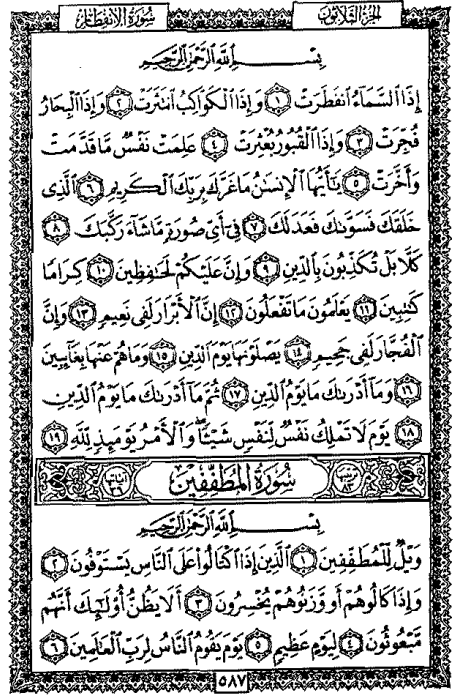 سُورَةُ الانفِطَار الجُزْءُ الثَّلَاثُونَ
بِسْمِ اللَّهِ الرَّحْمَٰنِ الرَّحِيمِ
إِذَا ٱلسَّمَآءُ ٱنفَطَرَتْ ١ وَإِذَا ٱلْكَوَاكِبُ ٱنتَثَرَتْ ٢ وَإِذَا ٱلْبِحَارُ
فُجِّرَتْ ٣ وَإِذَا ٱلْقُبُورُ بُعْثِرَتْ ٤ عَلِمَتْ نَفْسٌ مَّا قَدَّمَتْ
وَأَخَّرَتْ ٥ يَٰٓأَيُّهَا ٱلْإِنسَٰنُ مَا غَرَّكَ بِرَبِّكَ ٱلْكَرِيمِ ٦ ٱلَّذِى
خَلَقَكَ فَسَوَّىٰكَ فَعَدَلَكَ ٧ فِىٓ أَىِّ صُورَةٍ مَّا شَآءَ رَكَّبَكَ ٨
كَلَّا بَلْ تُكَذِّبُونَ بِٱلدِّينِ ٩ وَإِنَّ عَلَيْكُمْ لَحَٰفِظِينَ ١٠ كِرَامًا
كَٰتِبِينَ ١١ يَعْلَمُونَ مَا تَفْعَلُونَ ١٢ إِنَّ ٱلْأَبْرَارَ لَفِى نَعِيمٍ ١٣ وَإِنَّ
ٱلْفُجَّارَ لَفِى جَحِيمٍ ١٤ يَصْلَوْنَهَا يَوْمَ ٱلدِّينِ ١٥ وَمَا هُمْ عَنْهَا بِغَآئِبِينَ
١٦ وَمَآ أَدْرَىٰكَ مَا يَوْمُ ٱلدِّينِ ١٧ ثُمَّ مَآ أَدْرَىٰكَ مَا يَوْمُ ٱلدِّينِ
١٨ يَوْمَ لَا تَمْلِكُ نَفْسٌ لِّنَفْسٍ شَيْـًٔا ۖ وَٱلْأَمْرُ يَوْمَئِذٍ لِّلَّهِ ١٩
سُورَةُ المُطَفِّفِينَ
بِسْمِ اللَّهِ الرَّحْمَٰنِ الرَّحِيمِ
وَيْلٌ لِّلْمُطَفِّفِينَ ١ ٱلَّذِينَ إِذَا ٱكْتَالُوا۟ عَلَى ٱلنَّاسِ يَسْتَوْفُونَ ٢
وَإِذَا كَالُوهُمْ أَو وَّزَنُوهُمْ يُخْسِرُونَ ٣ أَلَا يَظُنُّ أُو۟لَٰٓئِكَ أَنَّهُم
مَّبْعُوثُونَ ٤ لِيَوْمٍ عَظِيمٍ ٥ يَوْمَ يَقُومُ ٱلنَّاسُ لِرَبِّ ٱلْعَٰلَمِينَ ٦
٥٨٧